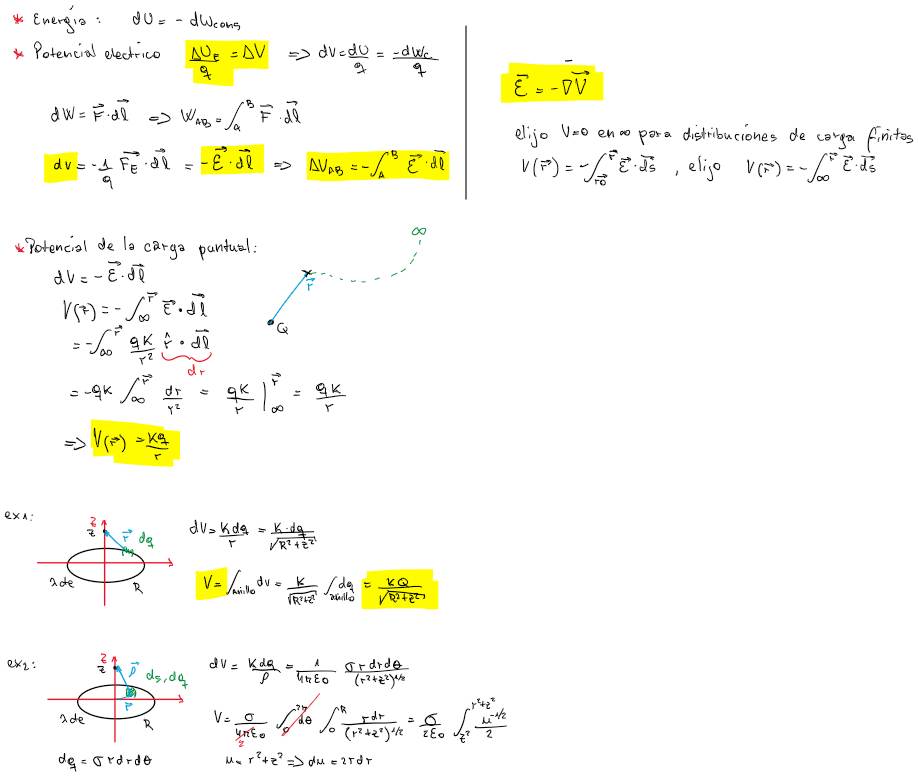 * Energía: dU = - dWcons
* Potencial electrico ΔU_E/q = ΔV => dV = dU/q = -dWc/q
dW = F⃗·dl⃗ => W_AB = ∫_a^B F⃗·dl⃗
dv = -1/q F⃗_E·dl⃗ = -ε⃗·dl⃗ => ΔV_AB = -∫_A^B ε⃗·dl⃗
ε⃗ = -∇V⃗
elijo V=0 en ∞ para distribuciones de carga finitas
V(r⃗) = -∫_r⃗0^r⃗ ε⃗·ds⃗ , elijo V(r⃗) = -∫_∞^r⃗ ε⃗·ds⃗
* Potencial de la carga puntual:
dV = -ε⃗·dl⃗
V(r⃗) = -∫_∞^r⃗ ε⃗·dl⃗
= -∫_∞^r⃗ qK/r² r̂·dl⃗
dr
= -qK ∫_∞^r⃗ dr/r² = qK/r |_∞^r⃗ = qK/r
=> V(r⃗) = Kq/r
∞
r⃗
Q
ex1:
z
z r⃗ dq
λde R
dV = Kdq/r = K·dq/√(R²+z²)
V = ∫_anillo dv = K/√(R²+z²) ∫_anillo dq = KQ/√(R²+z²)
ex2:
z
z ρ⃗ ds, dq
r
λde R
dq = σrdrdθ
dV = Kdq/ρ = 1/4πε0 σrdrdθ/(r²+z²)^1/2
V = σ/4πε0 ∫_0^2π dθ ∫_0^R rdr/(r²+z²)^1/2 = σ/2ε0 ∫_z²^r²+z² μ^-1/2/2
2
μ = r²+z² => dμ = 2rdr